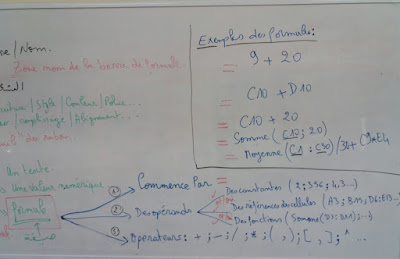 /Nom.
Zone nom de la barre de formule.
/Style/Couleur/Police...
/Alignement...
du ruban.
Un texte
Une valeur numérique
formule
Exemples des formules:
= 9 + 20
= C10 + D10
= C10 + 20
= Somme (C10; 20)
= Moyenne (C1 ; C30)/30+
① Commence Par =
② Des opérandes
Des constantes (2; 356; 4,3...)
Des références du cellules (A3; B15; D6:E13...)
Des fonctions (Somme(D2; D11);...)
③ Operateurs: + ; - ; / ; * ; ( , ) ; [ , ] ; ^ ...